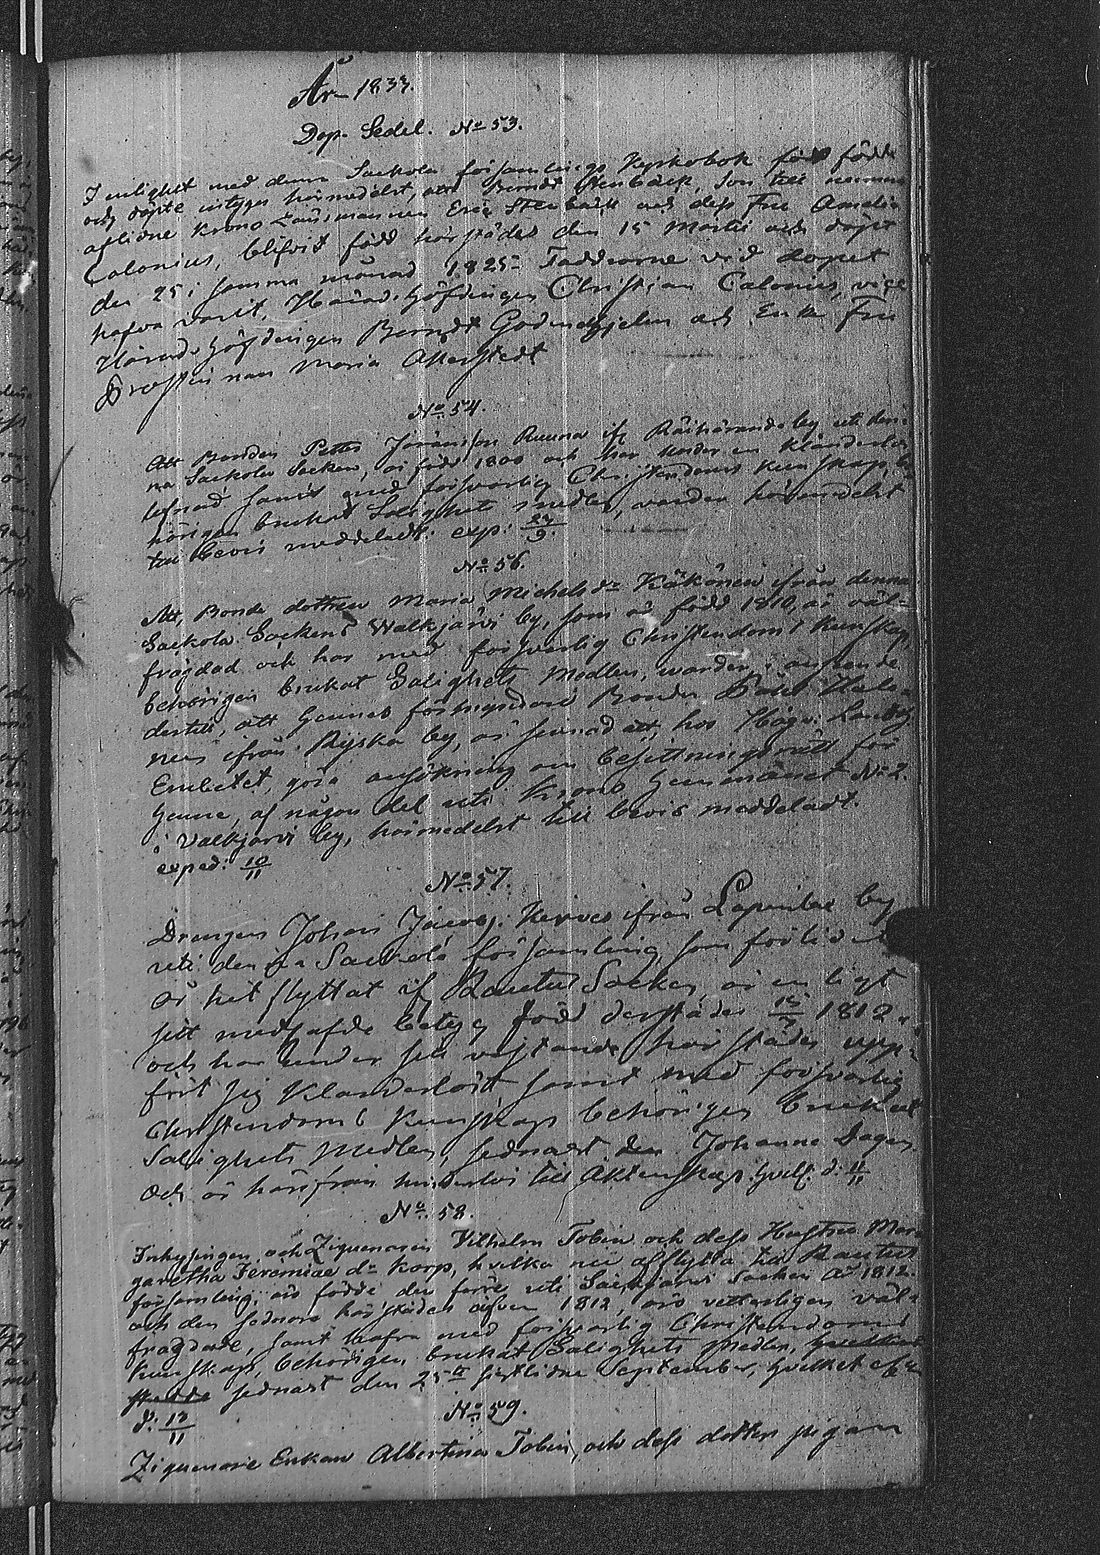 År 1833.
Dop-Sedel. No 53.
I enlighet med denna Sackola församlings Kyrkobok föd födde
och döpte intygas härmedelst, att Berndt Stenbäck, Son till numera
aflidne Krono Länsmannen Eric Stenbäck och dess Fru Amalia
Calonius, blifvit född härstädes den 15 Martii och döpt
den 25 i samma månad 1825. Faddrarne vid dopet
hafva varit, Härads Höfdingen Christian Calonius, vice
Härads Höfdingen Berndt Godenhjelm och Enke Fru
Maria Akerstedt
No 54.
Att Bonden Petter Ruuna if by uti den-
na Sackola Socken, är född 1800 och har under en klanderlös
lefnad samt med försvarlig Christendoms Kunskap, be-
hörigen brukat Salighets medlen, varder härmedelst
till bevis meddeladt. exp: 27/9.
No 56.
Att Bonde dottren Maria Michelsdr Käkönen ifrån denna
Sackola Sockens Walkjärvi by, som är född 1810, är väl-
frägdad och har med försvarlig Christendoms Kunskap,
behörigen brukat Salighets Medlen, varder, i anseende
dertill, att hennes Bonden
ifrån Rijska by, är sinnad att, hos Höga Landtz
Embetet, göra ansökning om besittningsrätt för
henne, af någon del uti Krono Hemmanet No 2.
i Valkjärvi by, härmedelst till bevis meddeladt.
exped: 10/11
No 57.
Drengen Johan Jacobs. Kerves ifrån Lapinlax by
uti denna Sackola församling, som förlidne
år hit flyttat if Rautus Socken är enligt
sitt medhafde betyg född derstädes 15/7 1812.
och har under sitt vistande härstädes upp-
fört sig Klanderlöst samt med försvarlig
Christendoms Kunskap behörigen brukat
Salighets Medlen, sednast den Johanne Dagen
och är härifrån hinderlös till Äktenskap. hvilk. d. 11/11
No 58.
Inhysingen och Ziguenaren Vilhelm Tobin och dess Hustru Mar-
garetha Jeremiae dr Korp, hvilka nu afflytta till Rautus
församling, äro födde den förre uti Säckjärvi Socken År 1812.
och den sednare härstädes äfven 1812, äro vetterligen väl-
frägdade, samt hafva med försvarlig Christendoms
Kunskap, behörigen brukat Salighets medlen,
sednast den 25te sistlidne September, hvilket
d. 13/11
No 59.
Ziguenare Enkan Albertina Tobin, och dess dotter pigan